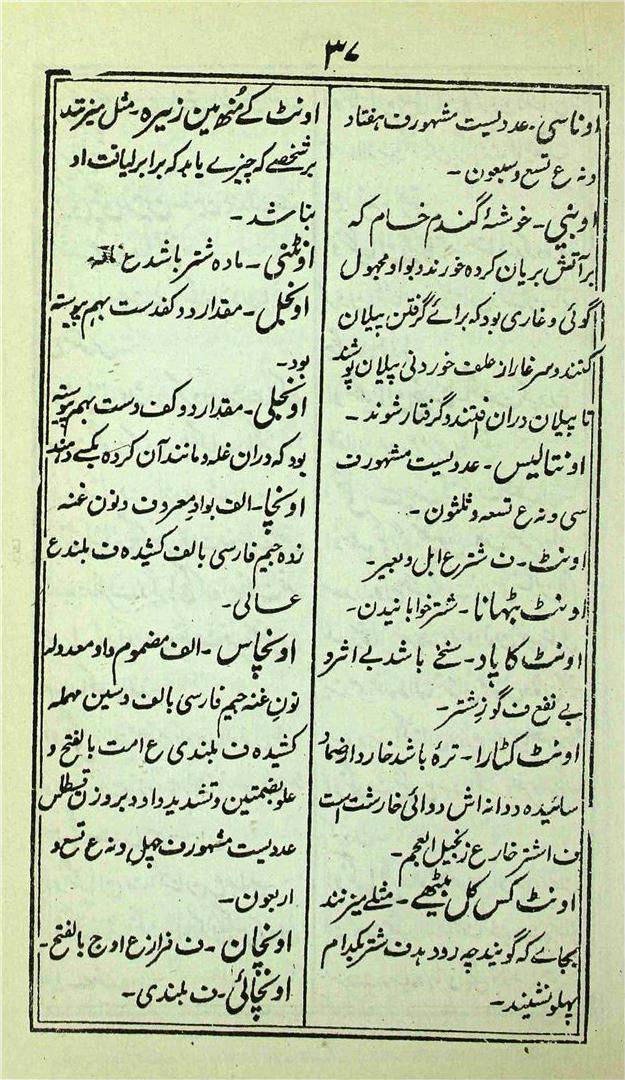 ۳۷
اوناسی۔ عددیست مشہور ف ہفتاد
ونہ ع تسع وسبعون۔
اوبنی۔ خوشۂ گندم خام کہ
برآتش بریان کردہ خورند و بواو مجہول
گوئی و غاری بود کہ برائے گرفتن پیلان
کنند و سر غار از علف خوردنی پیلان پوشند
تا پیلان دران افتند و گرفتار شوند۔
اونتالیس۔ عددیست مشہور ف
سی ونہ ع تسعہ و ثلثون۔
اونٹ۔ ف شتر ع ابل و بعیر۔
اونٹ بٹھانا۔ شتر خوابانیدن۔
اونٹ کا پاد۔ سخنے باشد بے اثر و
بے نفع ف گوز شتر۔
اونٹ کٹارا۔ ترۂ باشد خاردار ضماد
سائیدہ و دانہ اش دوائی خارشت است
ف اشتر خار ع زنجبیل العجم۔
اونٹ کس کل بیٹھے۔ مثلے میزنند
بجائے کہ گویند چہ رو دہد ف شتر بکدام
پہلو نشیند۔
اونٹ کے منھ مین زیرہ۔ مثل میزنند
بر شخصے کہ چیزے یابد کہ برابر لیاقت او
نباشد۔
اونٹنی۔ مادہ شتر باشد ع
اونجل۔ مقدار دو کف دست بہم پیوستہ
بود۔
اونجلی۔ مقدار دو کف دست بہم پیوستہ
بود کہ دران غلہ و مانند آن کردہ بکسے دہند
اونچا۔ الف بواو معروف و نون غنہ
زدہ جیم فارسی بالف کشیدہ ف بلند ع
عالی۔
اونچاس۔ الف مضموم واو معدولہ
نون غنہ جیم فارسی بالف و سین مہملہ
کشیدہ ف بلندی ع امت بالفتح و
علو بضمتین و تشدید واو و بروزن
عددیست مشہور ف چہل ونہ ع تسع و
اربعون۔
اونچان۔ ف فراز ع اوج بالفتح۔
اونچائی۔ ف بلندی۔